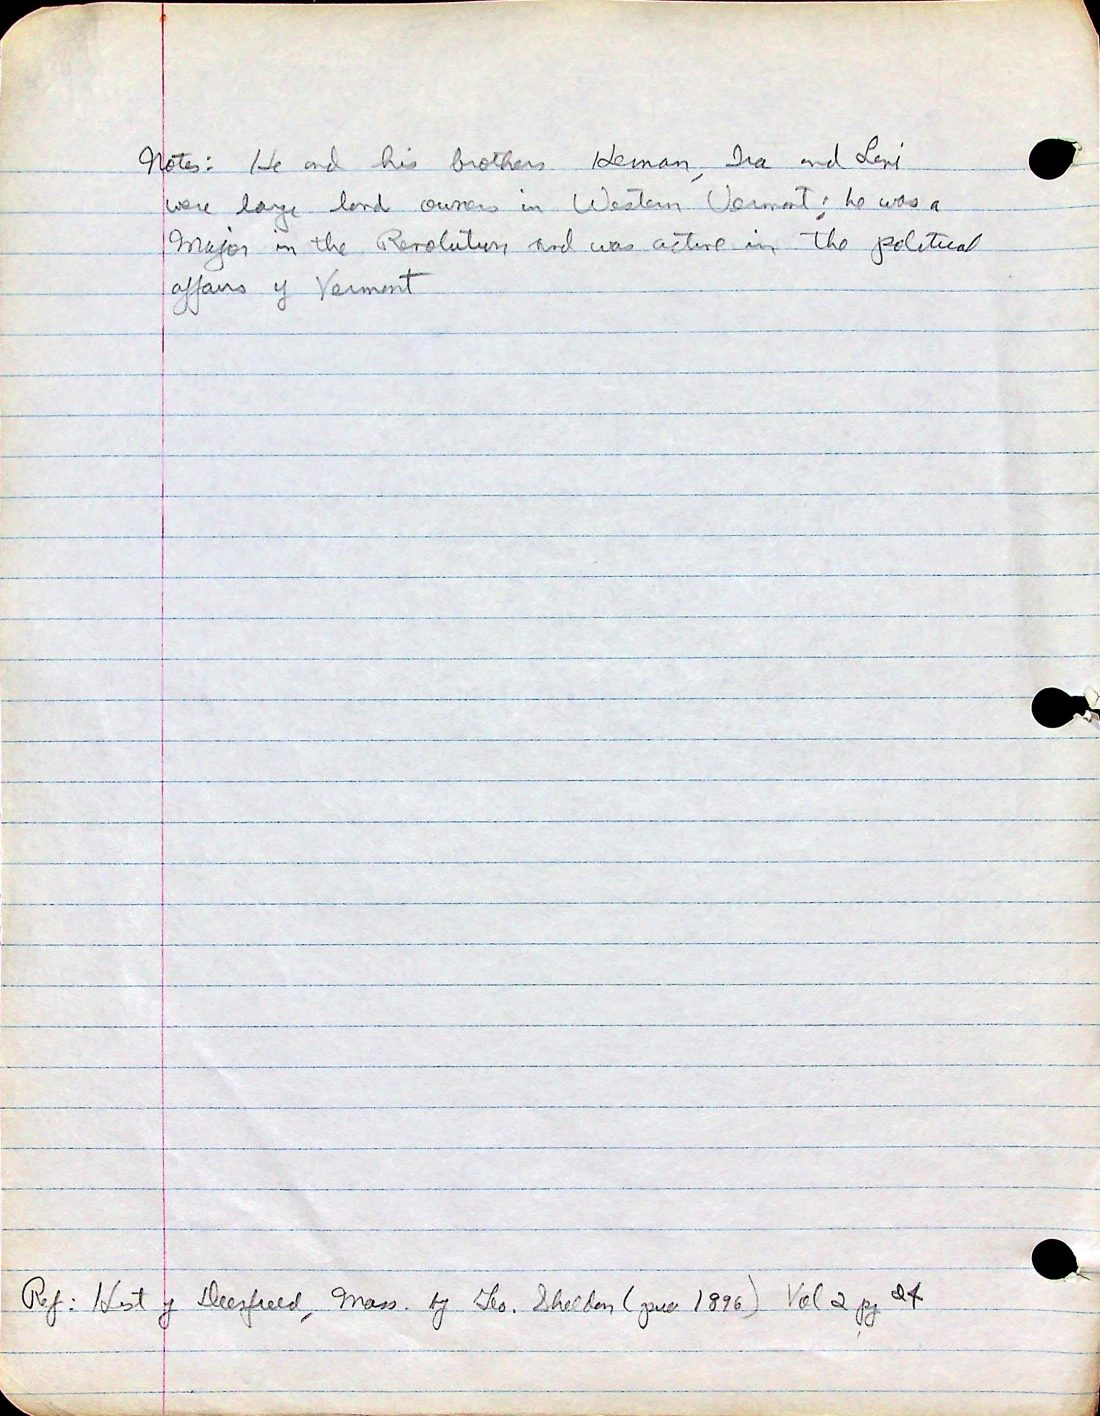 Notes: He and his brothers Heman, Ira and Levi
were large land owners in Western Vermont; he was a
Major in the Revolution and was active in the political
affairs of Vermont
Ref: Hist of Deerfield, Mass. by Geo. Sheldon ( 1896) Vol 2 pg 24